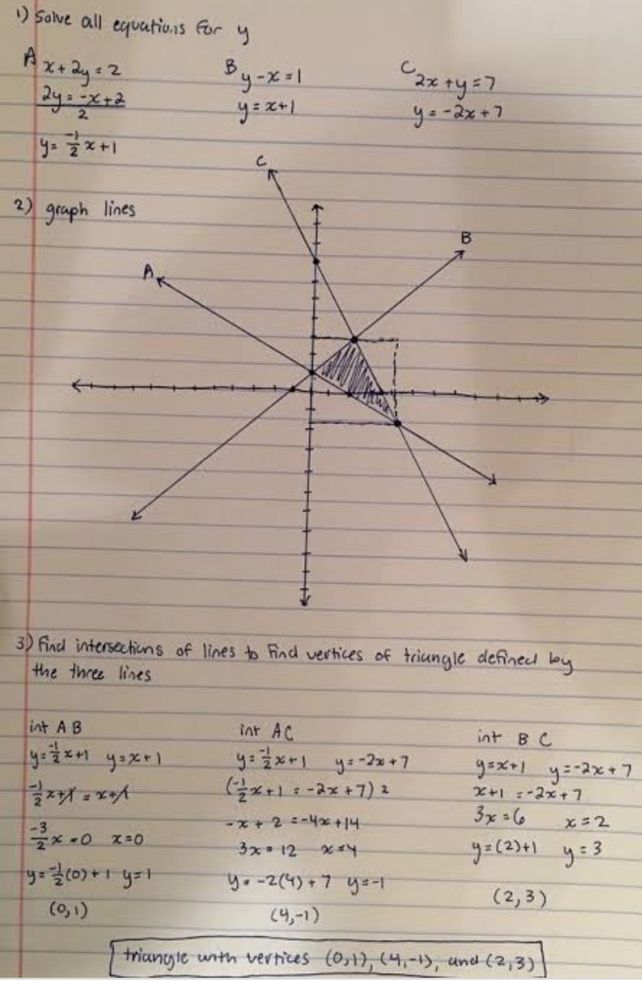 1) Solve all equations for y
A B C
x+2y=2 y-x=1 2x+y=7
2y=-x+2 y=x+1 y=-2x+7
2
y=-1/2x+1
C
2) graph lines
B
A
3) Find intersections of lines to find vertices of triangle defined by
the three lines
int AB int AC int BC
y=-1/2x+1 y=x+1 y=-1/2x+1 y=-2x+7 y=x+1 y=-2x+7
-1/2x+1=x+1 (-1/2x+1=-2x+7)2 x+1=-2x+7
-3/2x=0 x=0 -x+2=-4x+14 3x=6 x=2
3x=12 x=4
y=-1/2(0)+1 y=1 y=-2(4)+7 y=-1 y=(2)+1 y=3
(0,1) (4,-1) (2,3)
triangle with vertices (0,1), (4,-1), and (2,3)